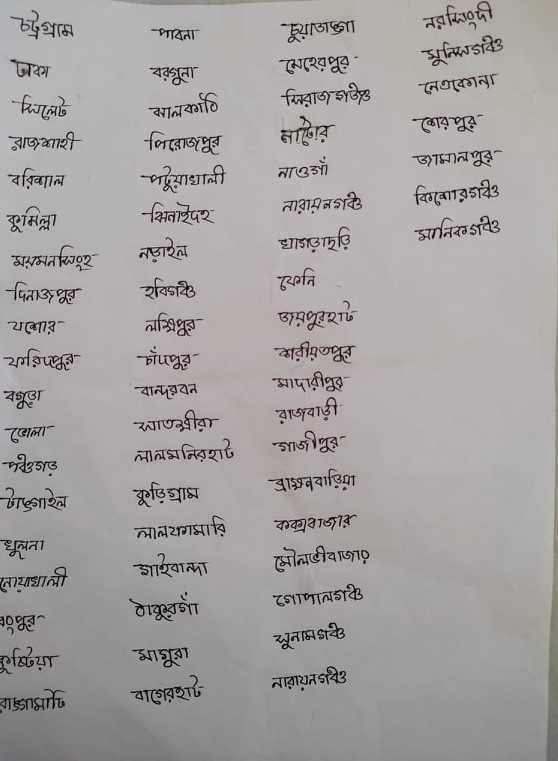 চট্টগ্রাম
ঢাকা
সিলেট
রাজশাহী
বরিশাল
কুমিল্লা
ময়মনসিংহ
দিনাজপুর
যশোর
ফরিদপুর
বগুড়া
ভোলা
পঞ্চগড়
টাঙ্গাইল
খুলনা
নোয়াখালী
রংপুর
কুষ্টিয়া
রাঙ্গামাটি
পাবনা
বরগুনা
ঝালকাঠি
পিরোজপুর
পটুয়াখালী
ঝিনাইদহ
নড়াইল
হবিগঞ্জ
লক্ষিপুর
চাঁদপুর
বান্দরবন
সাতক্ষীরা
লালমনিরহাট
কুড়িগ্রাম
লালফামারি
গাইবান্দা
ঠাকুরগাঁ
মাগুরা
বাগেরহাট
চুয়াডাঙ্গা
মেহেরপুর
সিরাজগঞ্জ
নাটোর
নাওগাঁ
নারায়নগঞ্জ
খাগড়াছড়ি
ফেনি
জয়পুরহাট
শরীয়তপুর
মাদারীপুর
রাজবাড়ী
গাজীপুর
ব্রাহ্মনবাড়িয়া
কক্সবাজার
মৌলভীবাজার
গোপালগঞ্জ
সুনামগঞ্জ
নারায়নগঞ্জ
নরসিংদী
মুন্সিগঞ্জ
নেত্রকোনা
শেরপুর
জামালপুর
কিশোরগঞ্জ
মানিকগঞ্জ